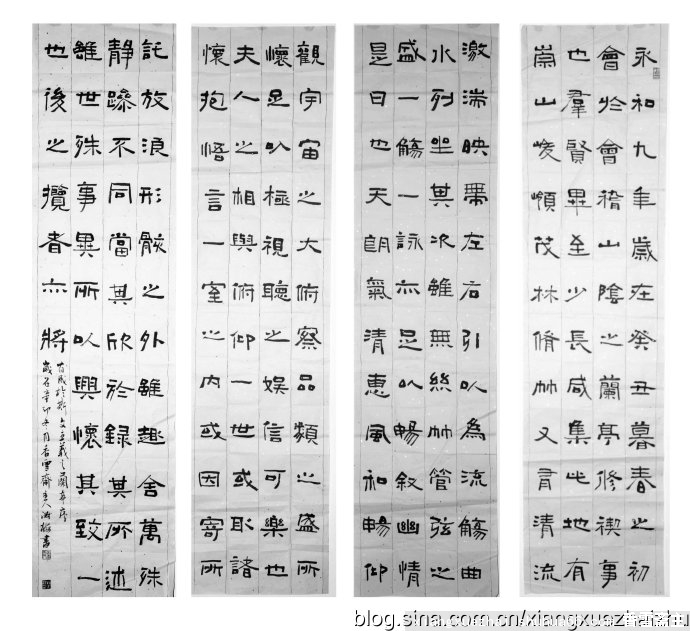 永和九年歲在癸丑暮春之初
會於會稽山陰之蘭亭修禊事
也羣賢畢至少長咸集此地有
崇山峻嶺茂林脩竹又有清流
激湍映帶左右引以為流觴曲
水列坐其次雖無絲竹管弦之
盛一觴一詠亦足以暢敘幽情
是日也天朗氣清惠風和暢仰
觀宇宙之大俯察品類之盛所
懷足以極視聽之娛信可樂也
夫人之相與俯仰一世或取諸
懷抱悟言一室之內或因寄所
託放浪形骸之外雖趣舍萬殊
靜躁不同當其欣於錄其所述
雖世殊事異所以興懷其致一
也後之攬者亦將
有感於斯文王羲之蘭亭序
歲在辛卯年月香雪齋主人書
blog.sina.com.cn/xiangxuezhaizhu